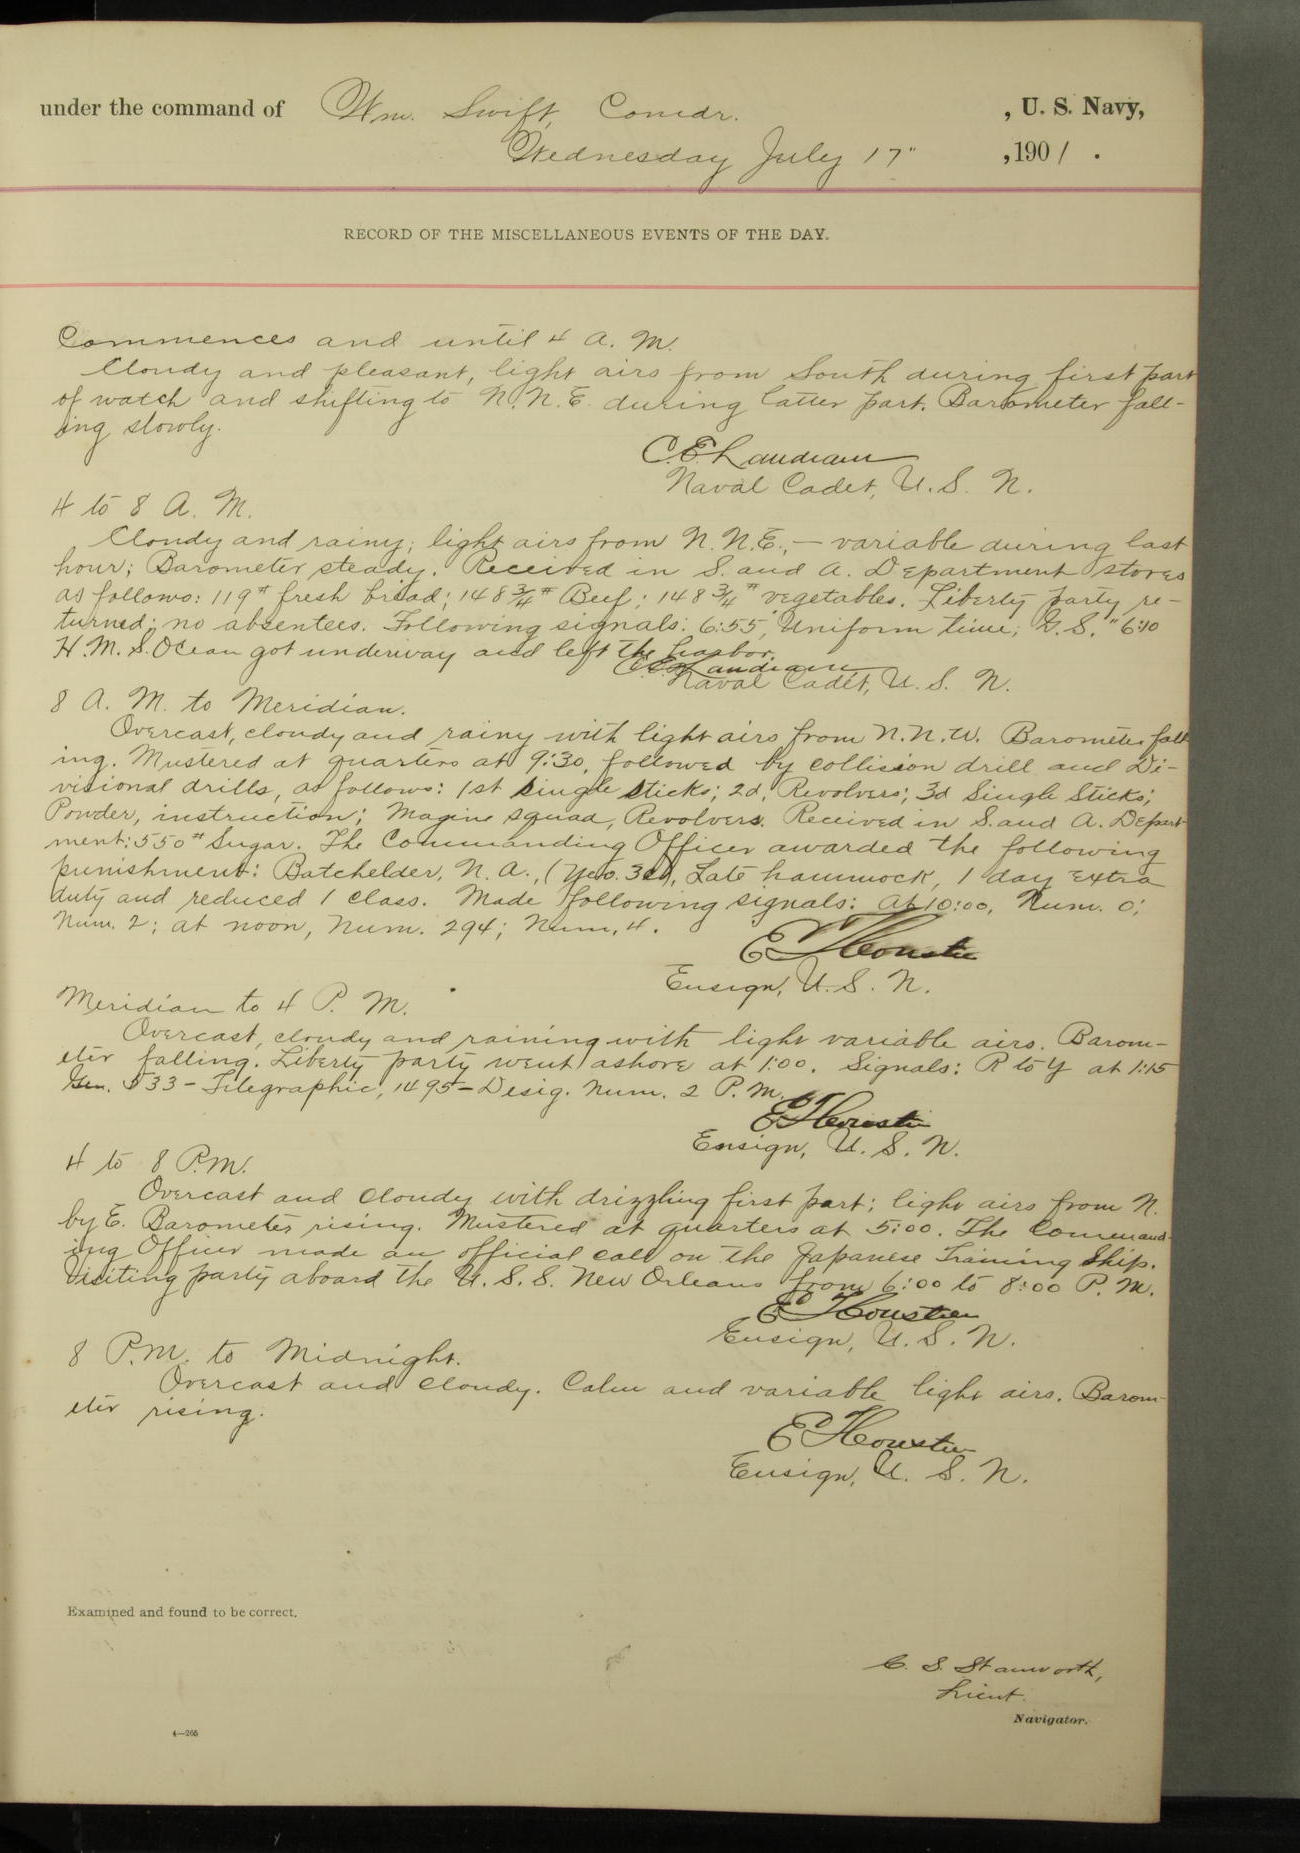 under the command of Wm. Swift, Comdr. , U. S. Navy,
Wednesday July 17" , 1901 .
RECORD OF THE MISCELLANEOUS EVENTS OF THE DAY.
Commences and until 4 A. M.
Cloudy and pleasant, light airs from South during first part
of watch and shifting to N.N.E. during latter part. Barometer fall-
ing slowly.
C. E. Landram
Naval Cadet, U. S. N.
4 to 8 A. M.
Cloudy and rainy; light airs from N.N.E., — variable during last
hour; Barometer steady. Received in S. and A. Department stores
as follows: 119# fresh bread; 148 3/4# Beef; 148 3/4# vegetables. Liberty party re-
turned; no absentees. Following signals: 6:55, Uniform time; G.S." 6:10
H.M.S. Ocean got underway and left the harbor.
C. E. Landram
Naval Cadet, U. S. N.
8 A. M. to Meridian.
Overcast, cloudy and rainy with light airs from N.N.W. Barometer fall-
ing. Mustered at quarters at 9:30, followed by collision drill and Di-
visional drills, as follows: 1st Single Sticks; 2d, Revolvers; 3d Single Sticks;
Powder, instruction; Magine squad, Revolvers. Received in S. and A. Depart-
ment: 550# Sugar. The Commanding Officer awarded the following
punishment: Batchelder, N. A., (Yeo. 3d), Late hammock, 1 day extra
duty and reduced 1 class. Made following signals: At 10:00, Num. 0;
Num. 2; at noon, Num. 294; Num. 4.
E T Constien
Ensign, U. S. N.
Meridian to 4 P. M.
Overcast, cloudy and raining with light variable airs. Barom-
eter falling. Liberty party went ashore at 1:00. Signals: R to Y at 1:15
Gen. 533 - Telegraphic, 1495 - Desig. Num. 2 P. M.
E T Constien
Ensign, U. S. N.
4 to 8 P.M.
Overcast and cloudy with drizzling first part; light airs from N.
by E. Barometer rising. Mustered at quarters at 5:00. The Command-
ing Officer made an official call on the Japanese Training Ship.
Visiting party aboard the U. S. S. New Orleans from 6:00 to 8:00 P. M.
E T Constien
Ensign, U. S. N.
8 P.M. to Midnight.
Overcast and cloudy. Calm and variable light airs. Barom-
eter rising.
E T Constien
Ensign, U. S. N.
Examined and found to be correct.
C. S. Stanworth,
Lieut.
Navigator.
4—265